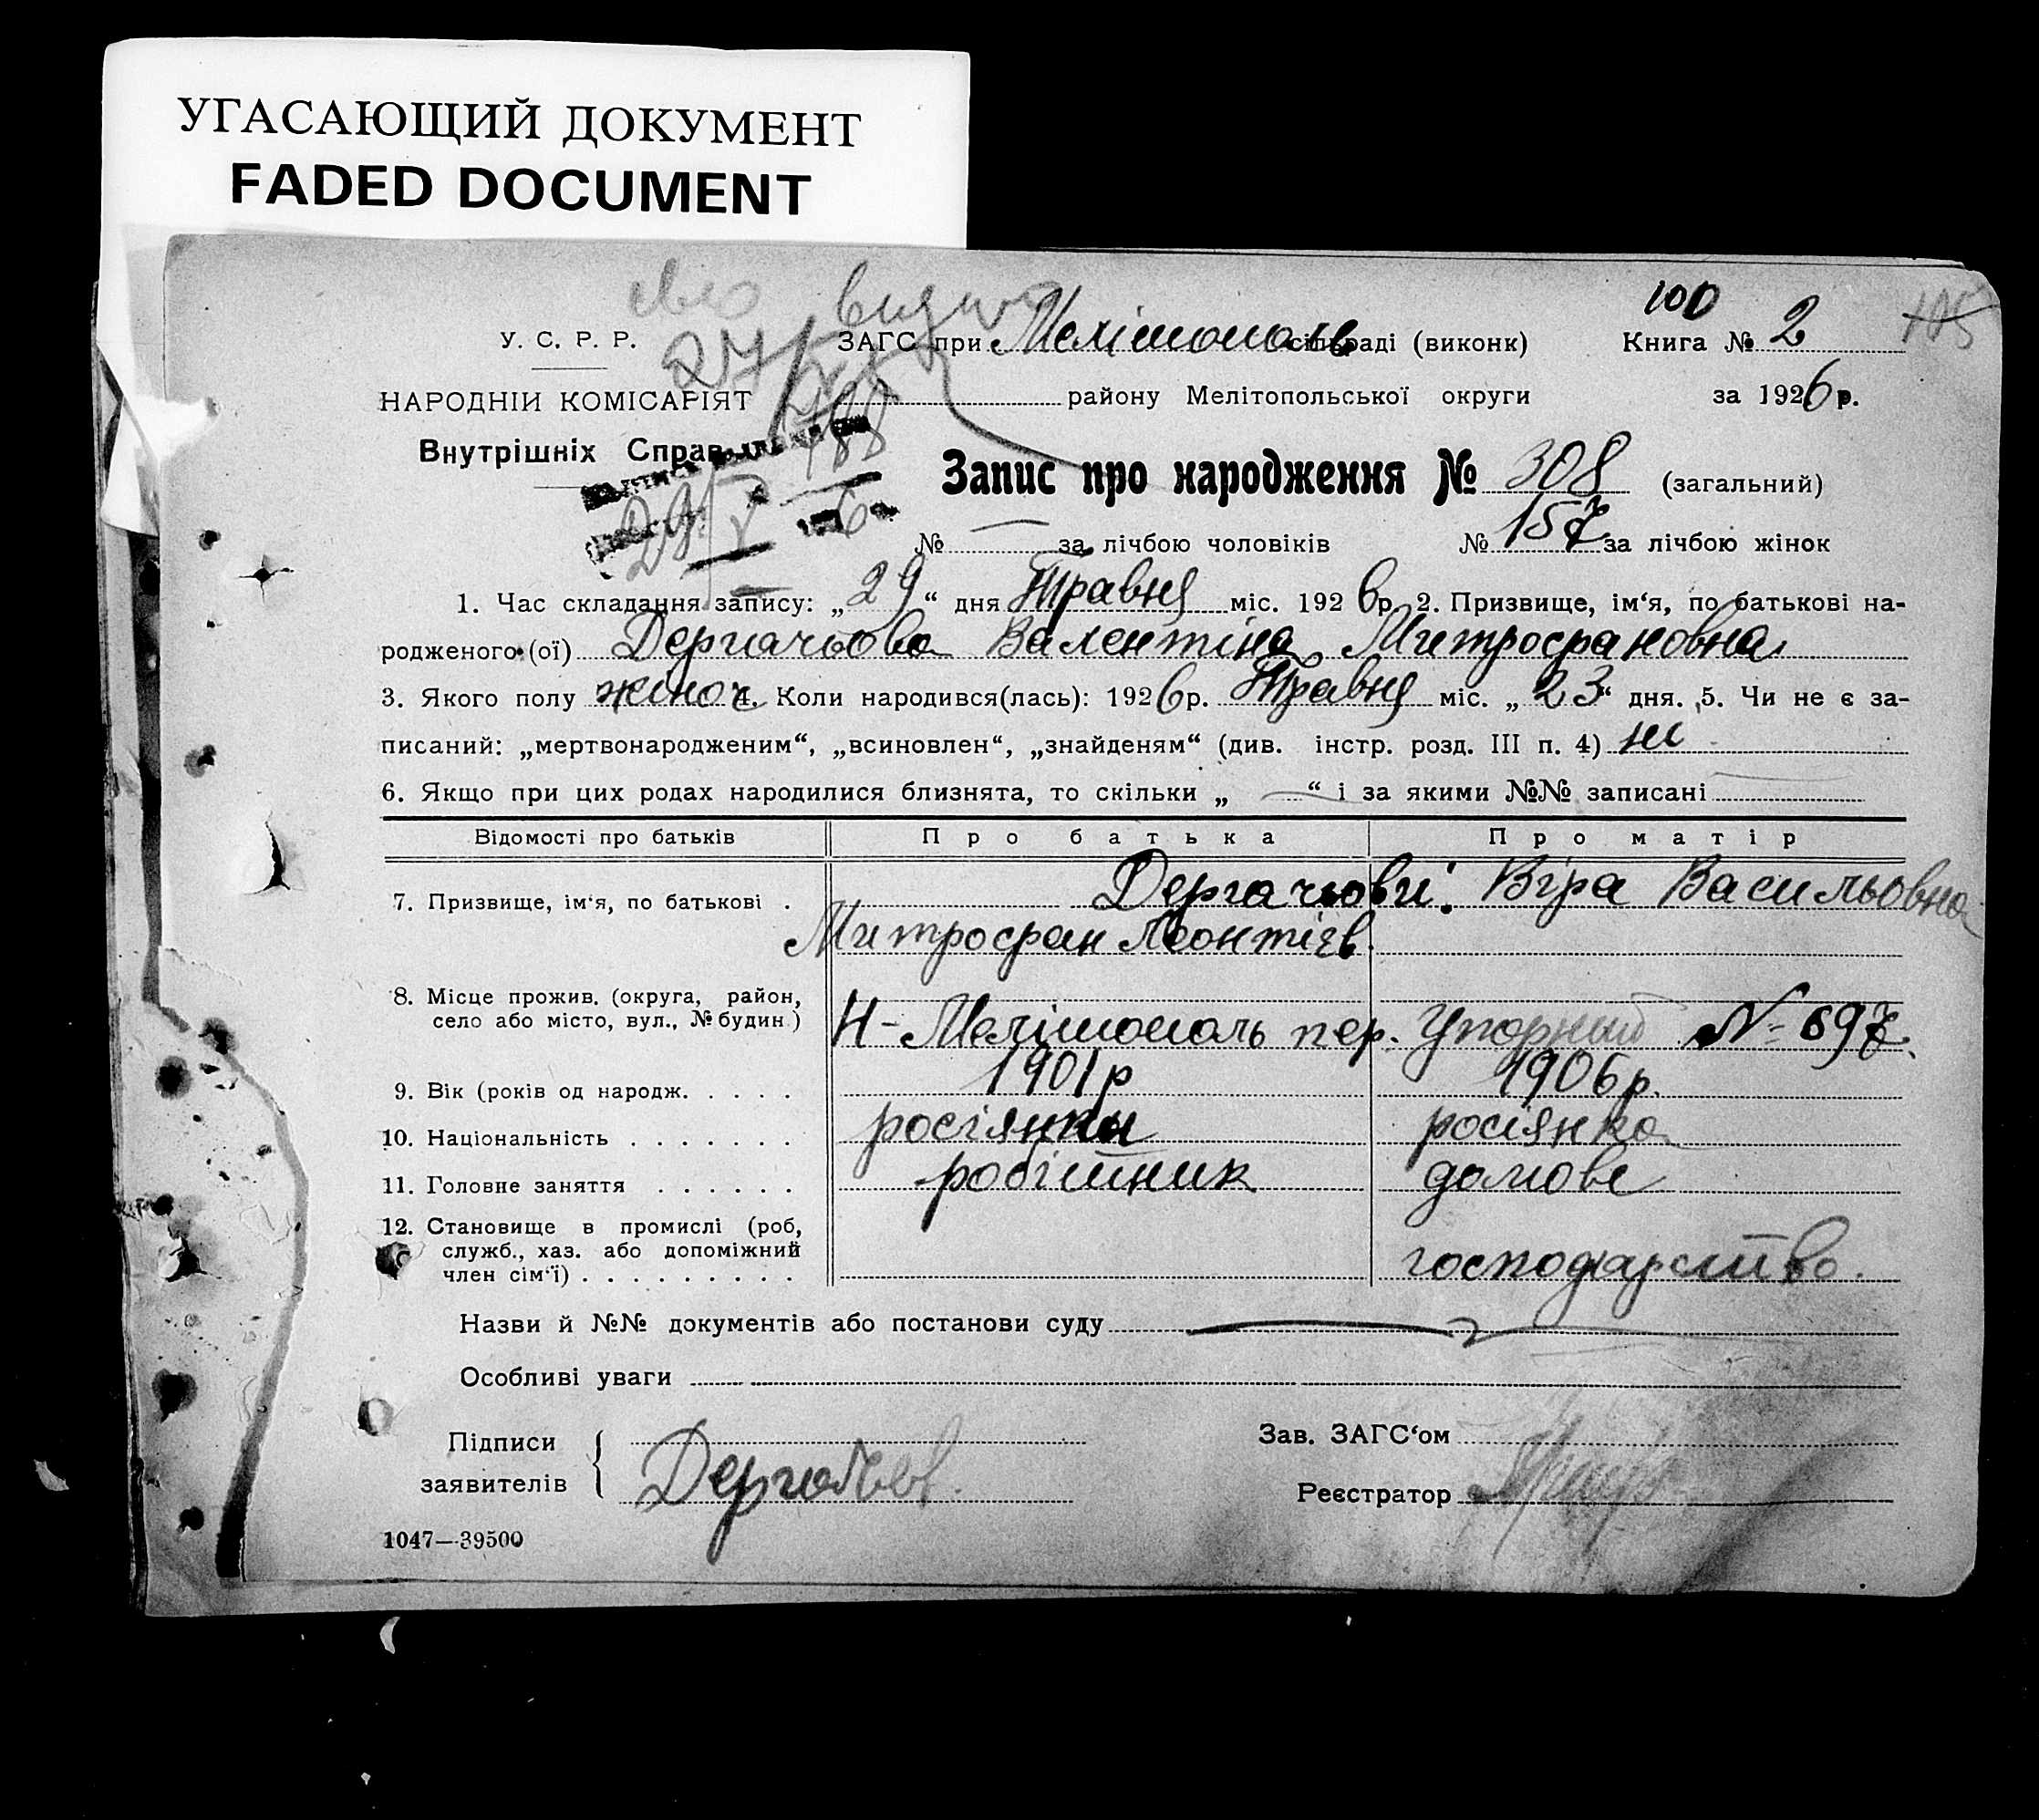 УГАСАЮЩИЙ ДОКУМЕНТ
FADED DOCUMENT
100
У. С. Р. Р. ЗАГС при Мелітополь сільраді (виконк) Книга № 2 105
НАРОДНІЙ КОМІСАРІЯТ района Мелітопольської округи за 1926 р.
Внутрішніх Справ
Запис про народження № 308 (загальний)
29/V 6
№ — за лічбою чоловіків № 157 за лічбою жінок
1. Час складання запису: „29“ дня Травня міс. 1926 р. 2. Призвище, ім‘я, по батькові на-
родженого (ої) Дергачьова Валентіна Митрофановна
3. Якого полу жіноч 4. Коли народився(лась): 1926 р. Травня міс. „23“ дня. 5. Чи не є за-
писаний: „мертвонародженим“, „всиновлен“, „знайденям“ (див. інстр. розд. III п. 4) не
6. Якщо при цих родах народилися близнята, то скільки „—“ і за якими №№ записані
Відомості про батьків Про батька Про матір
7. Призвище, ім‘я, по батькові . Дергачьови: Віра Васильовна
Митрофан Леонтієв
8. Місце прожив. (округа, район,
село або місто, вул., № будин.) Н-Мелітополь пер. Упорный № 697.
9. Вік (років од народж. . . . . 1901 р 1906 р.
10. Національність . . . . . . . росіянин росіянка
11. Головне заняття . . . . . . робітник домове
12. Становище в промислі (роб,
служб., хаз. або допоміжний
член сім‘ї) . . . . . . . . . господарство.
Назви й №№ документів або постанови суду
Особливі уваги
Підписи Зав. ЗАГС‘ом
заявителів Дергачьов. Реєстратор
1047—39500